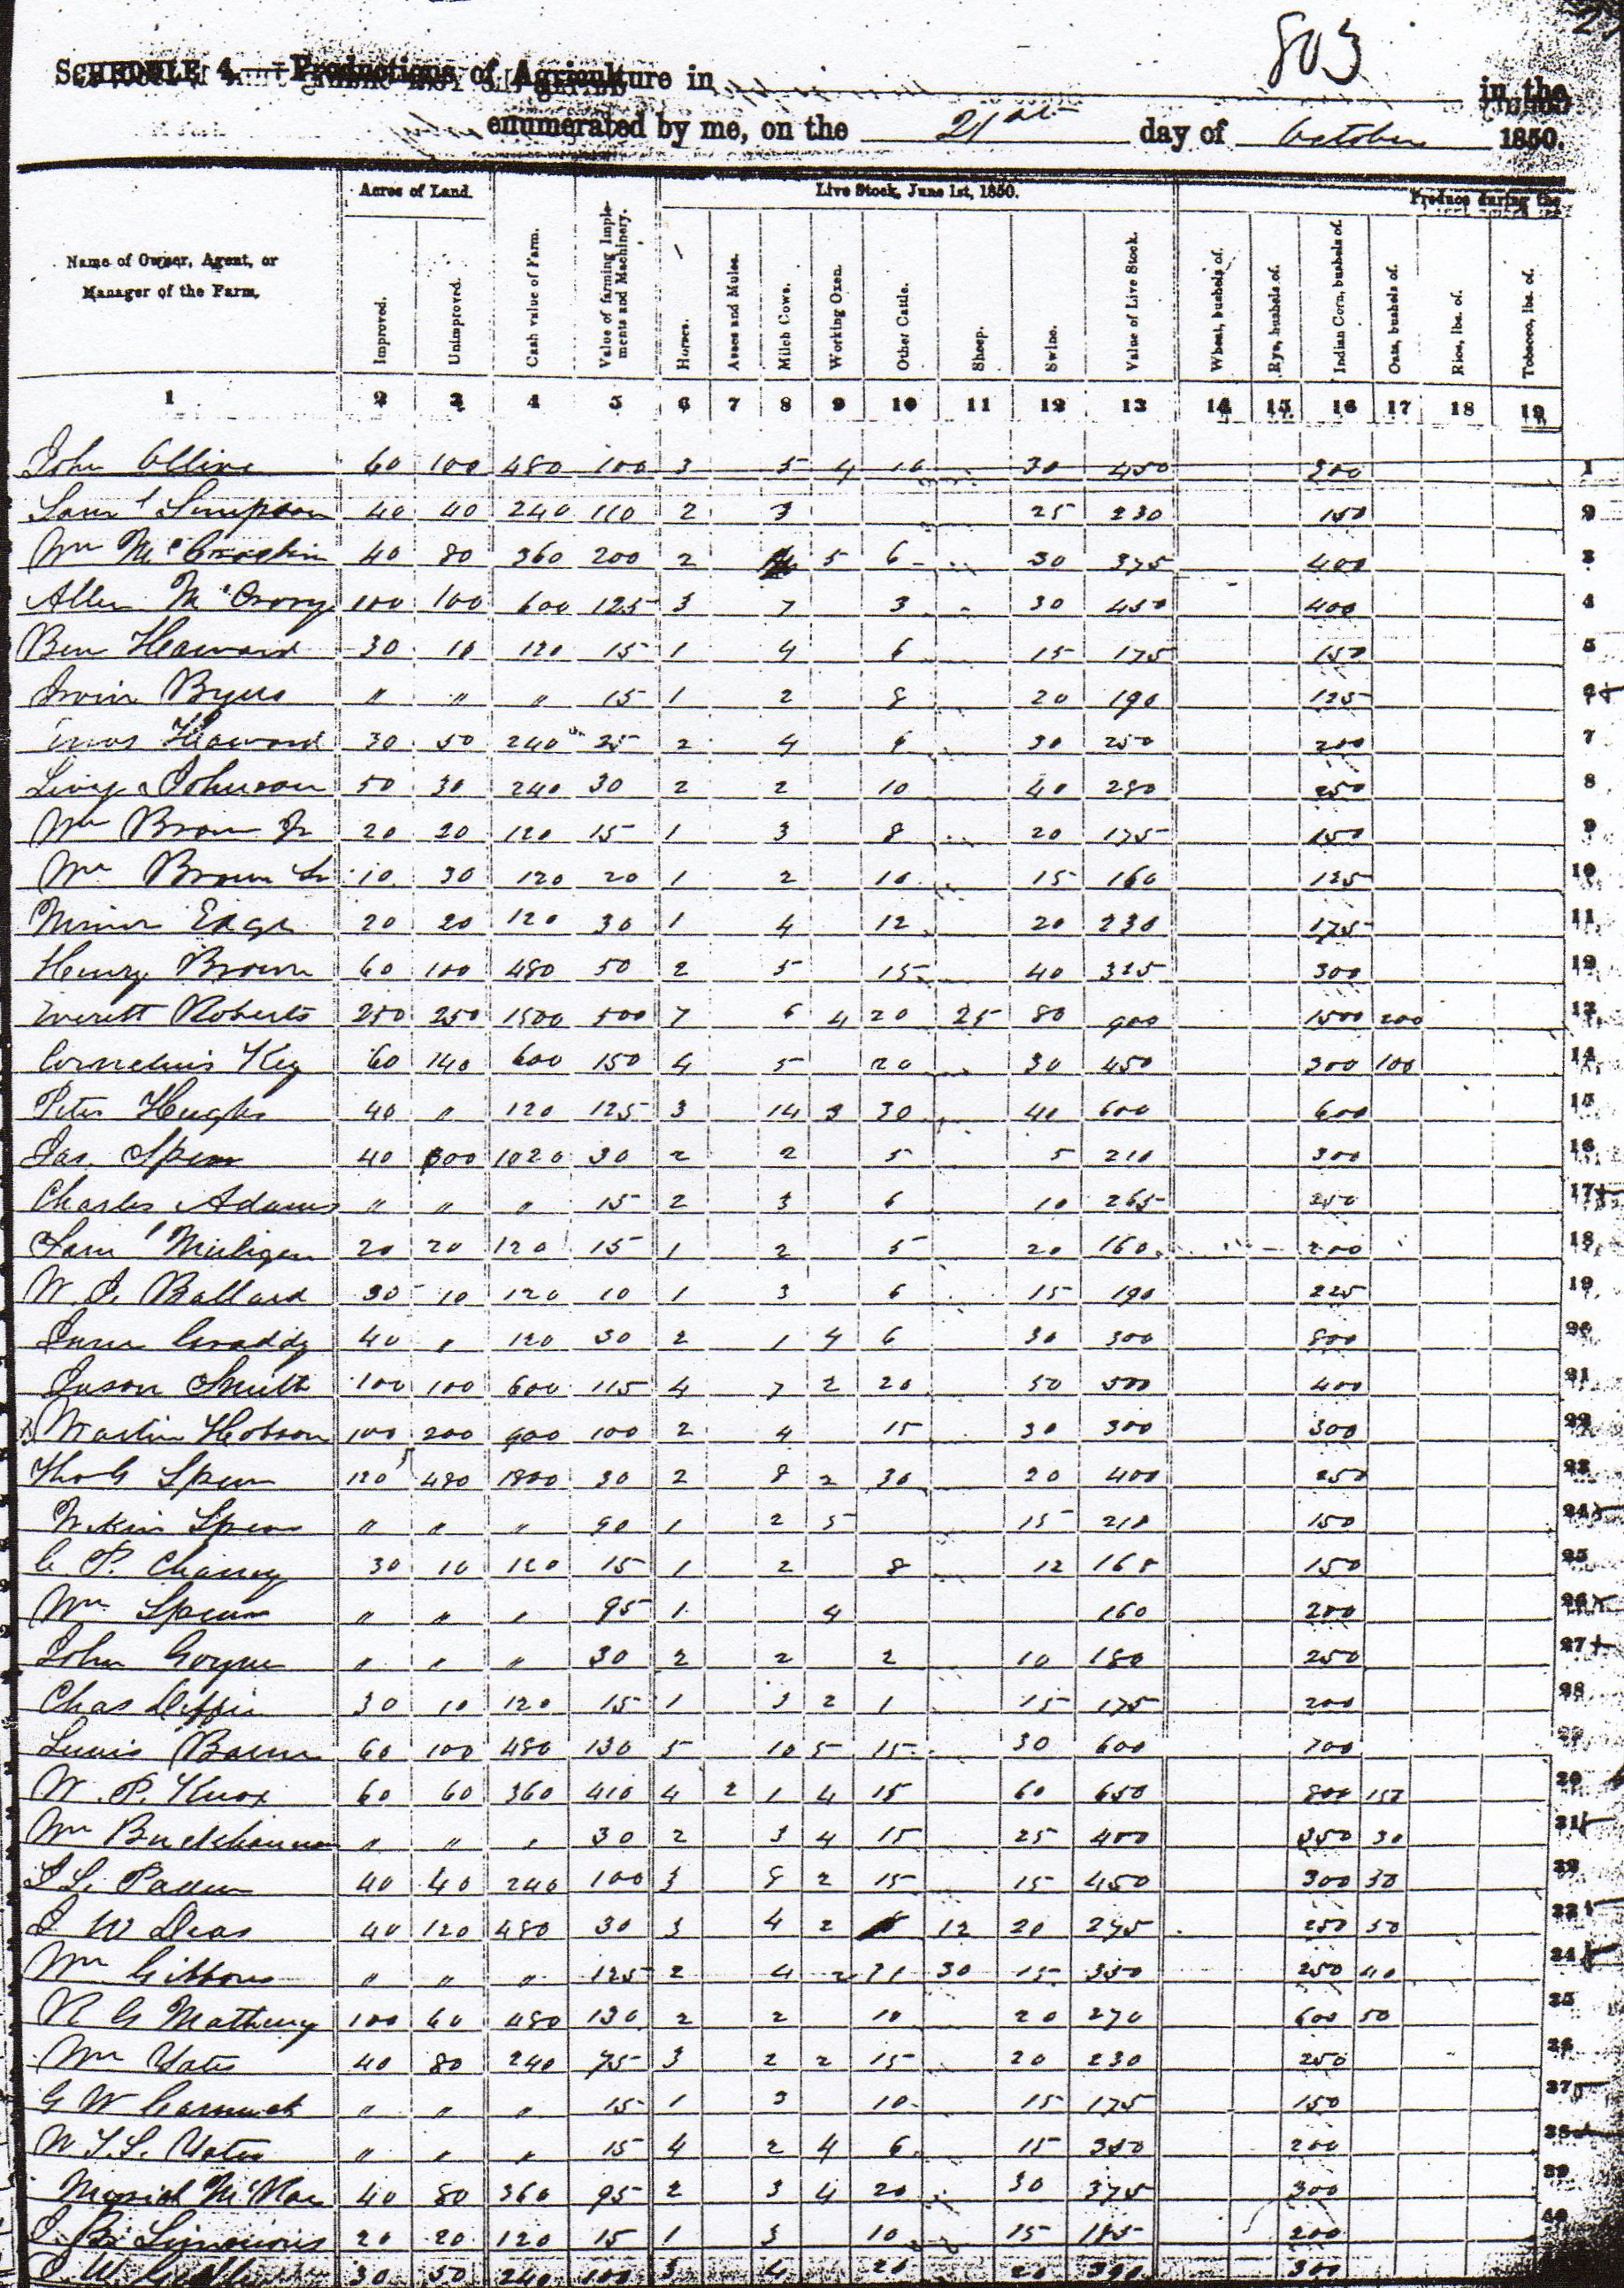 803
SCHEDULE 4.—Productions of Agriculture in in the
enumerated by me, on the 21st day of October 1850.
Name of Owner, Agent, or Manager of the Farm. Acres of Land. Improved. Unimproved. Cash value of Farm. Value of farming Implements and Machinery. Live Stock, June 1st, 1850. Horses. Asses and Mules. Milch Cows. Working Oxen. Other Cattle. Sheep. Swine. Value of Live Stock. Produce during the Wheat, bushels of. Rye, bushels of. Indian Corn, bushels of. Oats, bushels of. Rice, lbs. of. Tobacco, lbs. of.
1 2 3 4 5 6 7 8 9 10 11 12 13 14 15 16 17 18 19
John 60 100 480 100 3 5 4 10 30 450 300 1
Saml Simpson 40 40 240 110 2 3 25 230 150 2
Wm 40 80 360 200 2 5 6 30 375 400 3
Allen McCrory 100 100 600 125 3 7 3 30 450 400 4
Ben Haward 30 10 120 15 1 4 6 15 175 150 5
Irvin Byers " " " 15 1 2 8 20 190 125 6
Haward 30 50 240 25 2 4 6 30 250 200 7
Johnson 50 30 240 30 2 2 10 40 280 250 8
Wm Brown Jr 20 20 120 15 1 3 8 20 175 150 9
Wm Brown Sr 10 30 120 20 1 2 10 15 160 125 10
Minor Edge 20 20 120 30 1 4 12 20 230 175 11
Henry Brown 60 100 480 50 2 5 15 40 325 300 12
Everitt Roberts 250 250 1500 500 7 6 4 20 25 80 900 1500 200 13
Cornelius Key 60 140 600 150 4 5 20 30 450 300 100 14
Peter Hughs 40 " 120 125 3 14 3 30 40 600 600 15
Jas. Spear 40 300 1020 30 2 2 5 5 210 300 16
Charles Adams " " " 15 2 3 6 10 265 250 17
Saml Muligan 20 20 120 15 1 2 5 20 160 200 18
W. J. Ballard 30 10 120 10 1 3 6 15 190 225 19
Graddy 40 " 120 30 2 1 4 6 30 300 800 20
Jason Smith 100 100 600 115 4 7 2 20 50 500 400 21
Martin Hobson 100 200 900 100 2 4 15 30 300 300 22
Tho G Spear 120 480 1800 30 2 8 2 30 20 400 250 23
Spear " " " 90 1 2 5 15 210 150 24
C. P. Chaney 30 10 120 15 1 2 8 12 165 150 25
Wm Spear " " " 95 1 4 160 200 26
John Goyne " " " 30 2 2 2 10 180 250 27
Chas 30 10 120 15 1 3 2 1 15 175 200 28
Lewis 60 100 480 130 5 10 5 15 30 600 700 29
W. P. Knox 60 60 360 410 4 2 1 4 15 60 650 800 150 30
Wm Buckhannon " " " 30 2 3 4 15 25 400 350 30 31
40 40 240 100 3 8 2 15 15 450 300 30 32
J W Deas 40 120 480 30 3 4 2 12 20 275 250 50 33
Wm Gibbons " " " 125 2 4 2 31 30 15 350 250 40 34
R G Matheny 100 60 480 130 2 2 10 20 270 600 50 35
Wm Yates 40 80 240 75 3 2 2 15 20 230 250 36
G W " " " 15 1 3 10 15 175 150 37
Yates " " " 15 4 2 4 6 15 350 200 38
McRae 40 80 360 95 2 3 4 20 30 375 300 39
J. B. Simmons 20 20 120 15 1 3 10 15 185 200 40
J. W. 30 50 240 100 3 4 20 20 390 300